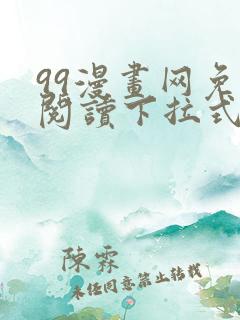 99漫畫网免
閱讀下拉式
陳霖
未经同意禁止转载